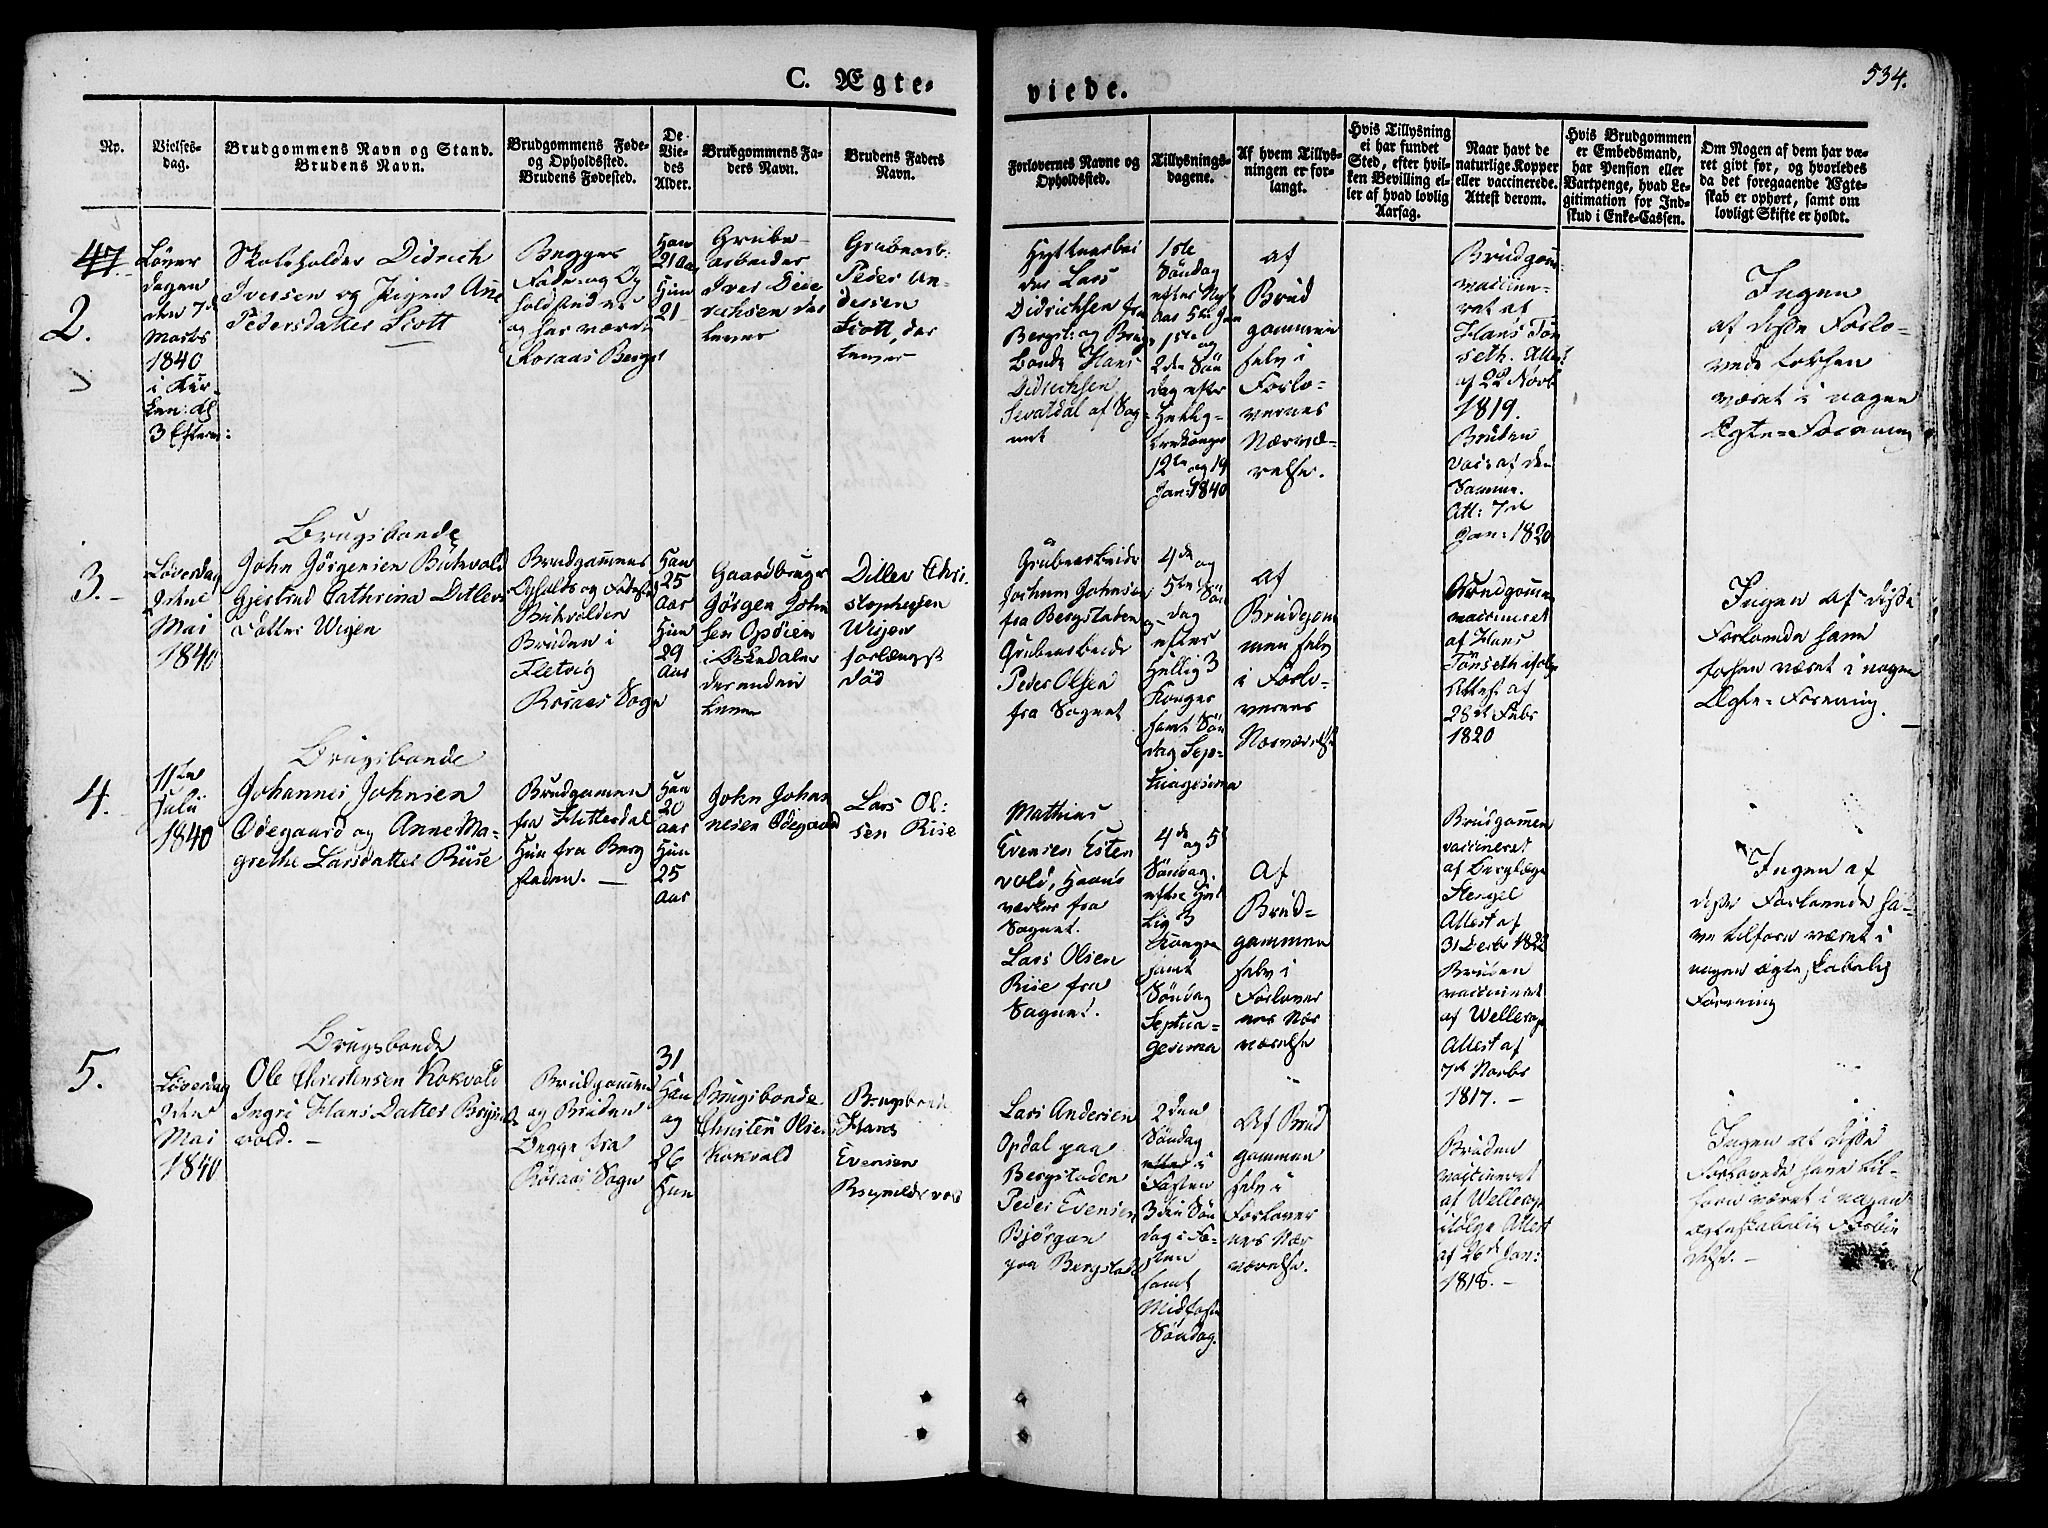 C. Ægte-
viede.
534.
No.
Vielses-
dag.
Brudgommens Navn og Stand.
Brudens Navn.
Brudgommens Føde-
og Opholdssted.
Brudens Fødested.
De
Vie-
des
Alder.
Brudgommens Fa-
ders Navn.
Brudens Faders
Navn.
Forlovernes Navne og
Opholdssted.
Tillysnings-
dagene.
Af hvem Tillys-
ningen er for-
langt.
Hvis Tillysning
ei har fundet
Sted, efter hvil-
ken Bevilling el-
ler af hvad lovlig
Aarsag.
Naar havt de
naturlige Kopper
eller vaccinerede.
Attest derom.
Hvis Brudgommen
er Embedsmand,
har Pension eller
Vartpenge, hvad Le-
gitimation for Ind-
skud i Enke-Cassen.
Om Nogen af dem har væ-
ret givt før, og hvorledes
da det foregaaende Ægte-
skab er ophørt, samt om
lovligt Skifte er holdt.
47
2.
Løver
dagen
den 7de
Marts
1840
i Kir-
ken: Kl
3 Efterm:
Skoleholder Didrich
Iversen og Pigen Ane
Pedersdatter Scott
Begges
Føde- og Op
holdsted er
og har været
Røraas Bergst
Han
21 Aar
Hun
21
Grube-
arbeider
Iver Dide
richsen der
lever
Grubearb.
Peder An-
dersen
Scott, der
lever
Hyttearbei
der Lars
Didrichsen fra
Bergst: og Brugs
bonde Hans
Didrichsen
Sevatdal af Sog-
net
1ste
Søndag
efter Nyt
aar 5te Jan
1ste og
2den Søn
dag efter
Hellig-
trekonger
12te og 19
Jan: 1840
af
Brud
gommen
selv i
Forlo-
vernes
Nærvæ-
relse.
Brudgom-
vaccine-
ret af
Hans Tøn
seth. Att:
af 22 Novb
1819.
Bruden
vacc af den
Samme.
Att: 7de
Jan: 1820
Ingen
af disse Forlo-
vede forhen
været i nogen
Ægte-Forening
3.
Løverdag
den
Mai
1840
Brugsbonde
John Jørgensen Bukvold
Gjertrud Cathrina Ditlevs
datter Wigen
Brudgommens
Opholds og Fødested
Bukvolden
Bruden i
Røraas Sogn
Han
25
Aar
Hun
29
Aar
Gaardbruger
Jørgen John
sen Opdien
der endnu
lever
Ditlev Chri-
stophersen
Wigen
forlængst
død
Grubearbeider
Jochum Johnsen
fra Bergstaden
Grubearbeider
Peder Olsen
fra Sognet
4de og
5te Søn
dag
efter
Hellig 3
Konger
samt Søn
dag Sep-
tuagesima
af
Brudgom
men selv
i Forlo-
vernes
Nærværelse
Brudgommen
vaccineret
af Hans
Tønseth ifølge
Attest af
28de Febr
1820
Ingen af disse
Forlovede have
forhen været i nogen
Ægte-Forening.
4.
11te
Julii
1840
Brugsbonde
Johannes Johnsen
Ødegaard og Anne Ma-
grethe Larsdatter Riise
Brudgommen
fra Hitterdal
Hun fra Berg
staden.
Han
20
Aar
Hun
25
Aar
John Johan
nesen Ødegaard
Lars Ol-
sen Rise
Mathias
Evensen Esten
vold, Haand
værker fra
Sognet.
Lars Olsen
Rise fra
Sognet.
4de og 5
Søndag
efter Hel
lig 3
Konger
samt
Søndag
Septua-
gesima
Af
Brud-
gommen
selv i
Forlover
nes Nær
værelse
Brudgommen
vaccineret
af Berglæge
Stengel
Attest af
31 Decbr 1822
Bruden
vaccineret
af Wellerop
Attest af
7de Novbr
1817.
Ingen af
disse Forlovede ha-
ve tilforn været i
nogen ægteskabelig
Forening
5.
Løverdag
den
Mai
1840
Brugsbonde
Ole Christensen Kokvold
Ingri Hans Datter Brynilds
vold.
Brudgommen
og Bruden
begge fra
Røraas Sogn
31
Han
og
26
Hun
Brugsbonde
Christen Olsen
Kokvold
Brugsbonde
Hans
Evensen
Brynildsvold
Lars Andersen
Opdal paa
Bergstaden
Peder Evensen
Bjørgan
paa Bergstaden
2den
Søndag
efter i
Fasten
3die Søn
dag i Fa-
sten
samt
Midfaste
Søndag.
Af Brud
gommen
selv i
Forlover
nes Nær
værelse.
Bruden
vaccineret
af Wellerop
ifølge Attest
af 26de Jan:
1818.
Ingen af disse
Forlovede have til-
forn været i nogen
ægteskabelig Forbin
delse.